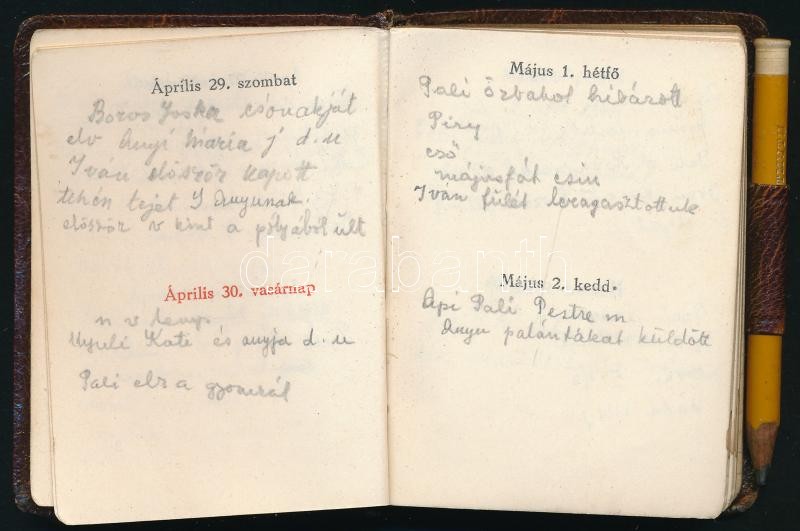 Április 29. szombat
Boros Joska csónakját
elv Anyi Mária j d.u
Iván először kapott
tehén tejet I Anyunak.
először v kint a pólyából ült
Április 30. vasárnap
n v
Nyuli Kató és anyja d.u
Pali elr a gyomrál
Május 1. hétfő
Pali Őrbahol hibázott
Piry
eső
májusfát csin
Iván fülét leragasztottuk
Május 2. kedd.
Api Pali Pestre m
Anyu palántákat küldött
darabanth